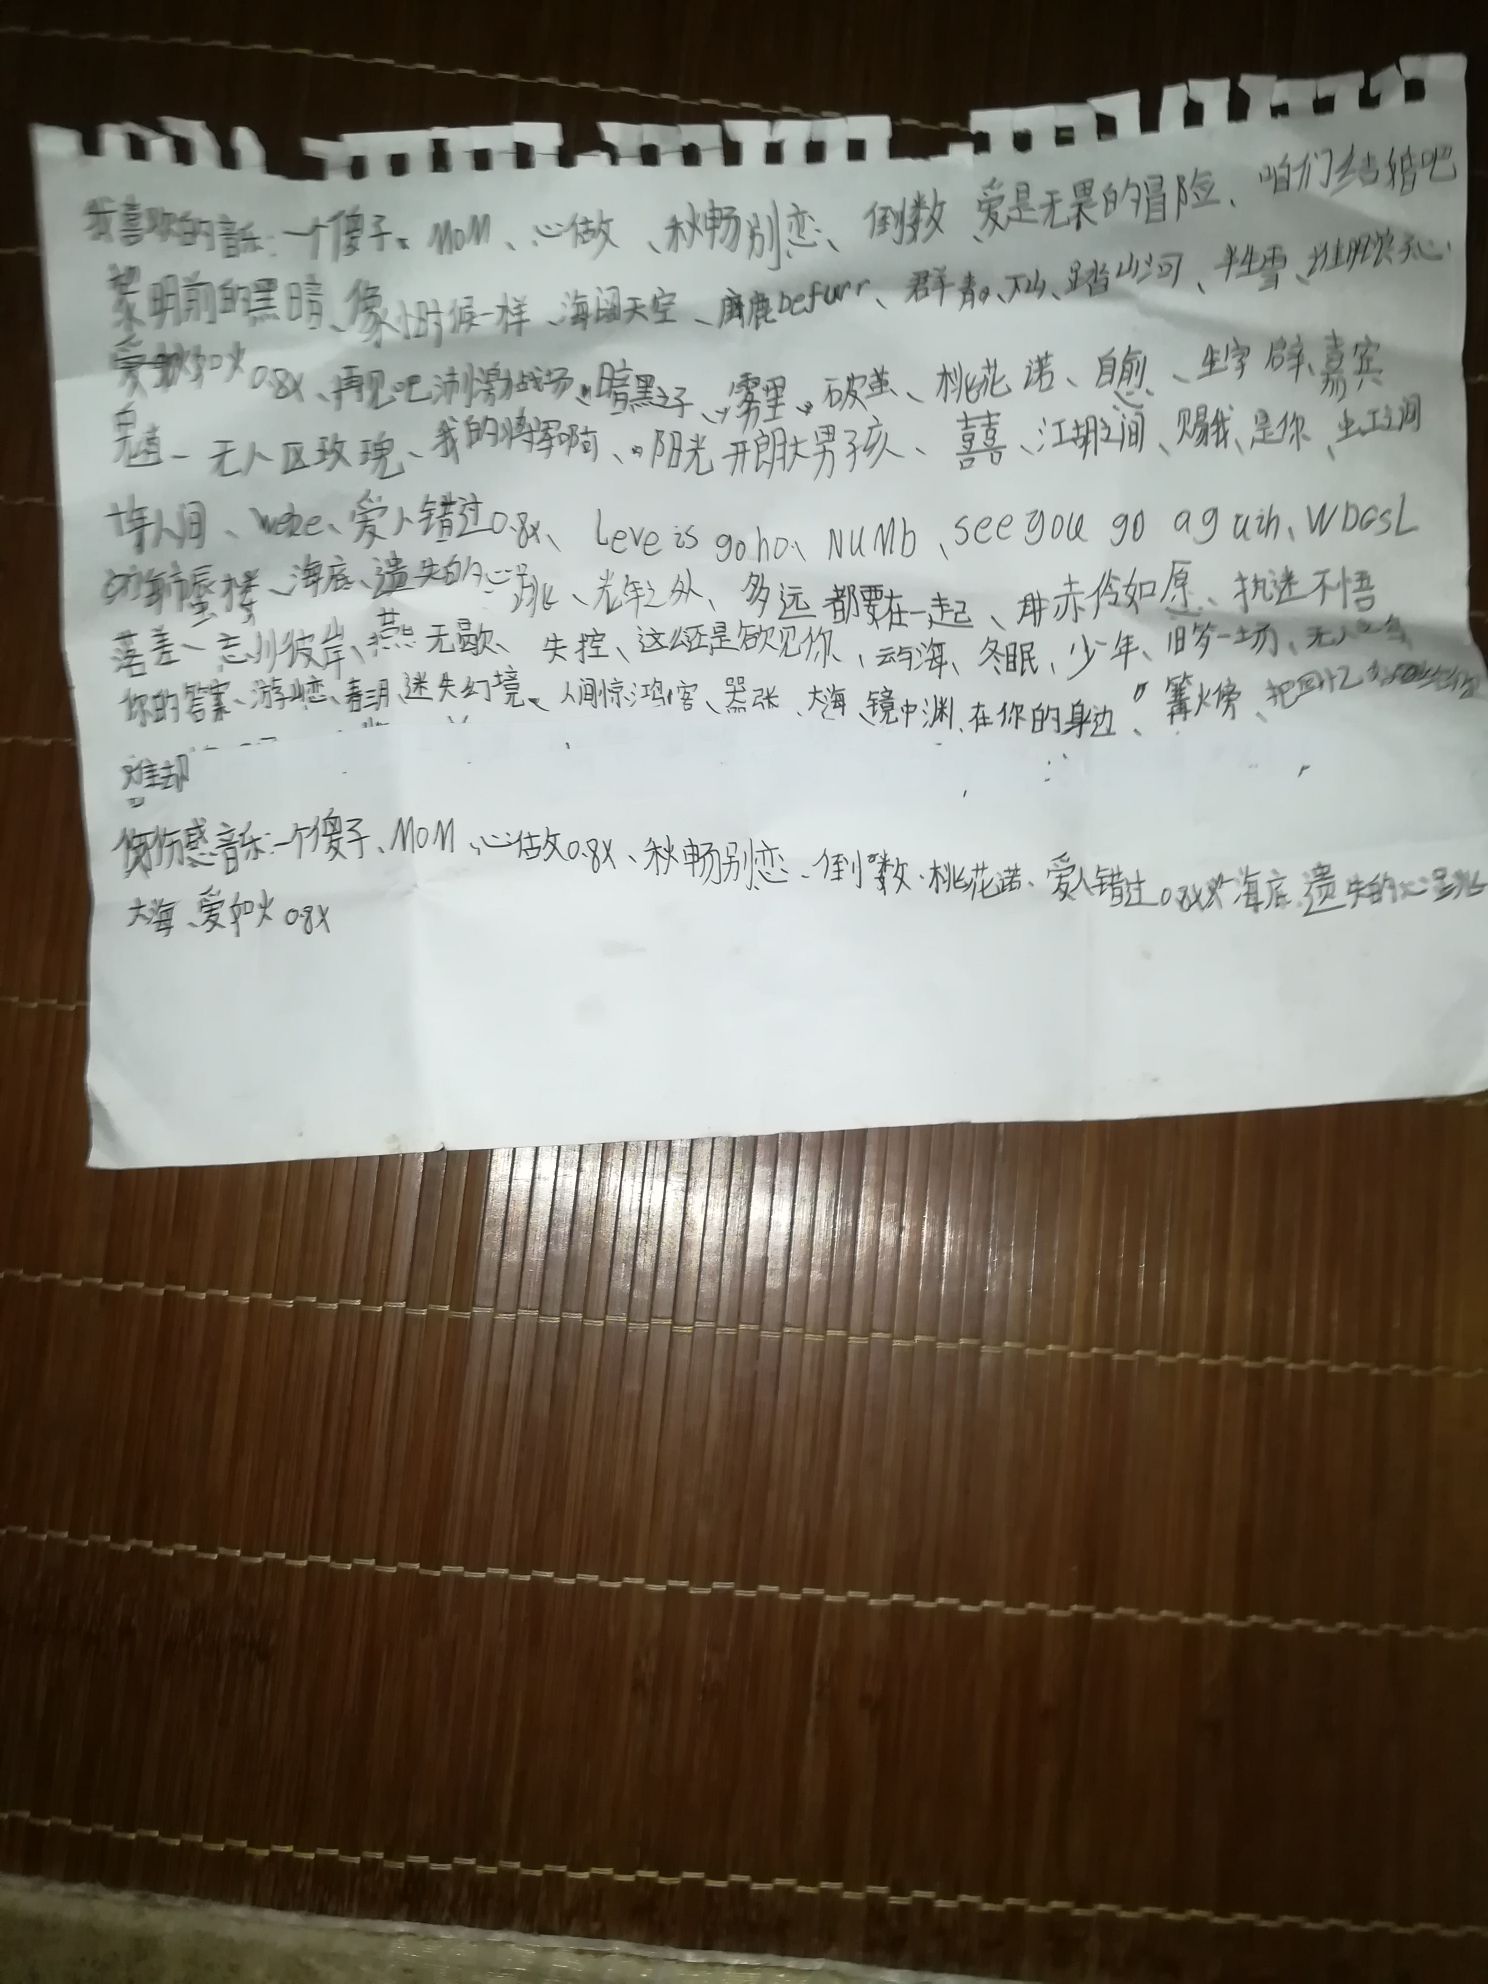 我喜欢的音乐:一个傻子、MOM、心做、秋畅别恋、倒数、爱是无果的冒险、咱们结婚吧
黎明前的黑暗、像小时候一样、海阔天空、麋鹿Defurr、群青、下山、踏山河、半生雪、
爱如火0.8X、再见吧刺激战场、暗黑之子、雾里、破茧、桃花诺、自愈、生字辟、嘉宾
无人区玫瑰、我的将军啊、阳光开朗大男孩、囍、江湖之间、赐我、是你、
年人间、爱人错过0.8X、Leve is gono、NUMb、see you go aguin、WDGSL
海底、遗失的心跳、光年之外、多远都要在一起、赤伶如原、执迷不悟
落差、忘川彼岸、燕无歇、失控、这么还是欲见你、云与海、冬眠、少年、旧梦一场、无人之岛
你的答案、游恋、春三月、迷失幻境、人间惊鸿客、嚣张、大海、镜中渊、在你的身边、篝火傍、把回忆
难却
伤感音乐:一个傻子、MOM、心做0.8X、秋畅别恋、倒数、桃花诺、爱人错过0.8X、海底、遗失的心跳
大海、爱如火0.8X